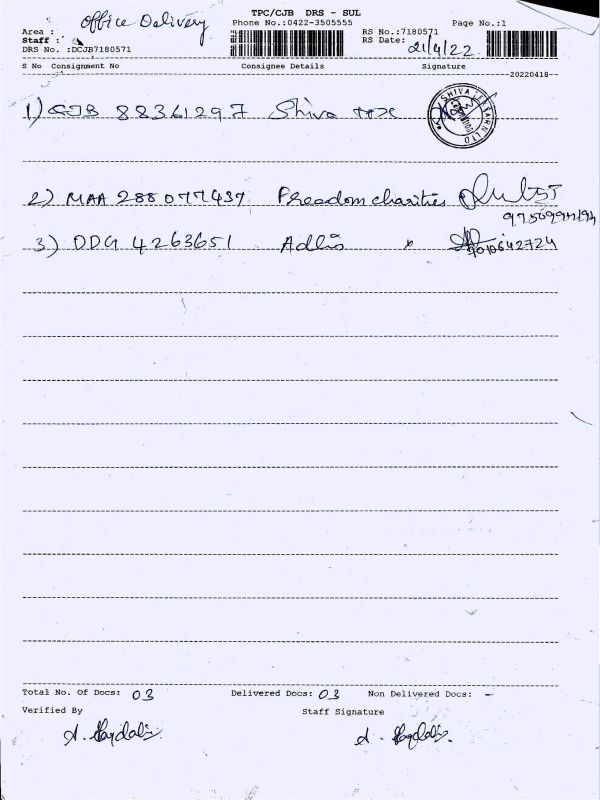 TPC/CJB DRS - SUL
Office Delivery
Area :
Phone No.:0422-3505555
Page No.:1
RS No.:7180571
Staff :
RS Date: 21/4/22
DRS No. :DCJB7180571
S No Consignment No Consignee Details Signature
20220418
1) CJB 88361297 Shiva tex
SHIVA LTD
2) MAA 288077437 Freedom charities
3) DDG 4263651 Adhis
9010642724
Total No. Of Docs: 03 Delivered Docs: 03 Non Delivered Docs: -
Verified By Staff Signature